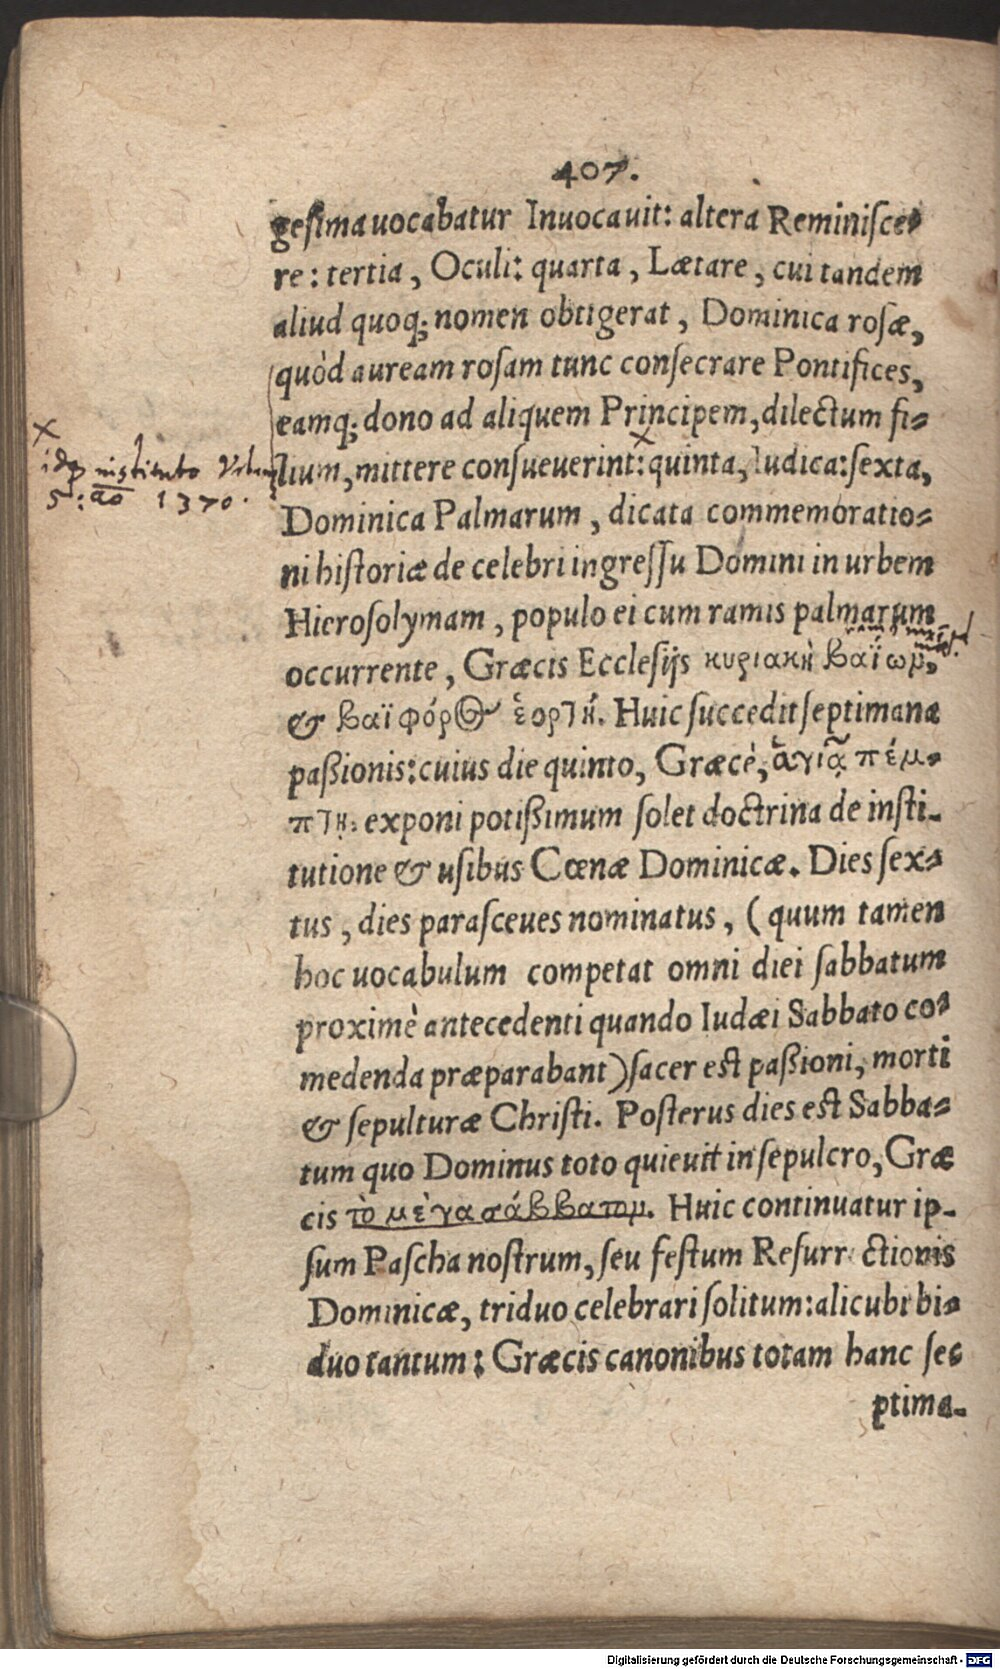 407.
gesima uocabatur Inuocauit: altera Reminisce-
re: tertia, Oculi: quarta, Lætare, cui tandem
aliud quoq; nomen obtigerat, Dominica rosæ,
quòd auream rosam tunc consecrare Pontifices,
eamq; dono ad aliquem Principem, dilectum fi-
lium, mittere consueuerint: quinta, Iudica: sexta,
Dominica Palmarum, dicata commemoratio-
ni historiæ de celebri ingressu Domini in urbem
Hierosolymam, populo ei cum ramis palmarum
occurrente, Græcis Ecclesijs κυριακὴ βαΐωμ,
& βαϊφόρος ἑορτή. Huic succedit septimana
paßionis: cuius die quinto, Græcè, ἁγίᾳ πέμ-
πτῃ: exponi potißimum solet doctrina de insti-
tutione & usibus Cœnæ Dominicæ. Dies sex-
tus, dies parasceues nominatus, (quum tamen
hoc uocabulum competat omni diei sabbatum
proximè antecedenti quando Iudæi Sabbato co-
medenda præparabant) sacer est paßioni, morti
& sepulturæ Christi. Posterus dies est Sabba-
tum quo Dominus toto quieuit in sepulcro, Græ
cis τὸ μέγα σάββατομ. Huic continuatur ip-
sum Pascha nostrum, seu festum Resurrectionis
Dominicæ, triduo celebrari solitum: alicubi bi-
duo tantum: Græcis canonibus totam hanc se-
ptima-
x
instituto Urban
5: ao 1370.
x
Digitalisierung gefördert durch die Deutsche Forschungsgemeinschaft - DFG